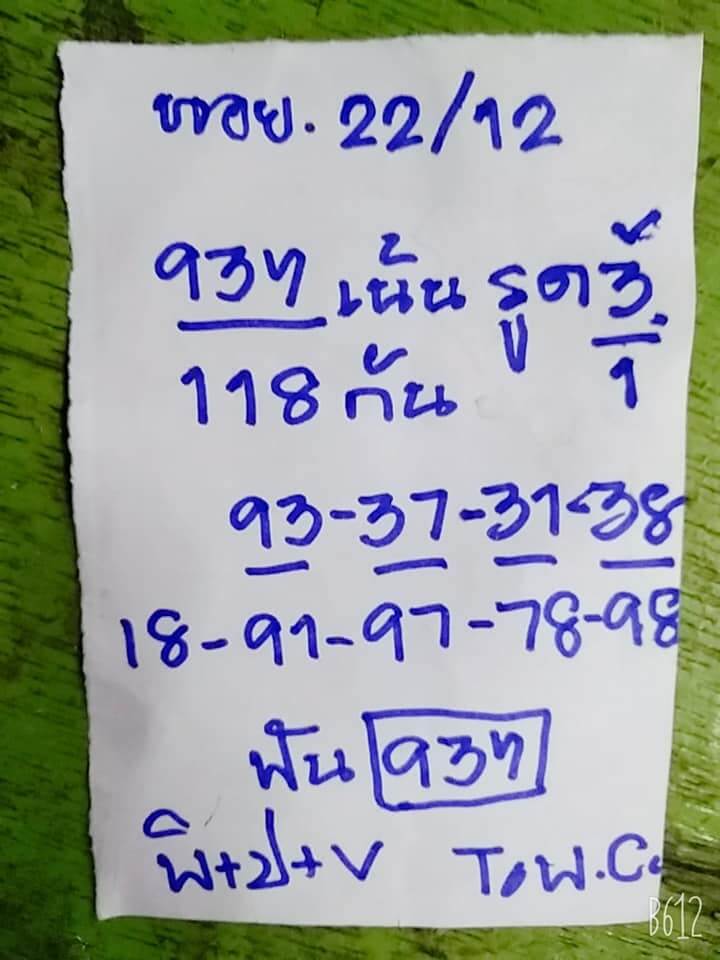 ฮานอย. 22/12
937 เน้น รูด 3.
118 กัน 1
93-37-31-38
18-91-97-78-98
ฟัน 937
พิ+ป+V T.
B612